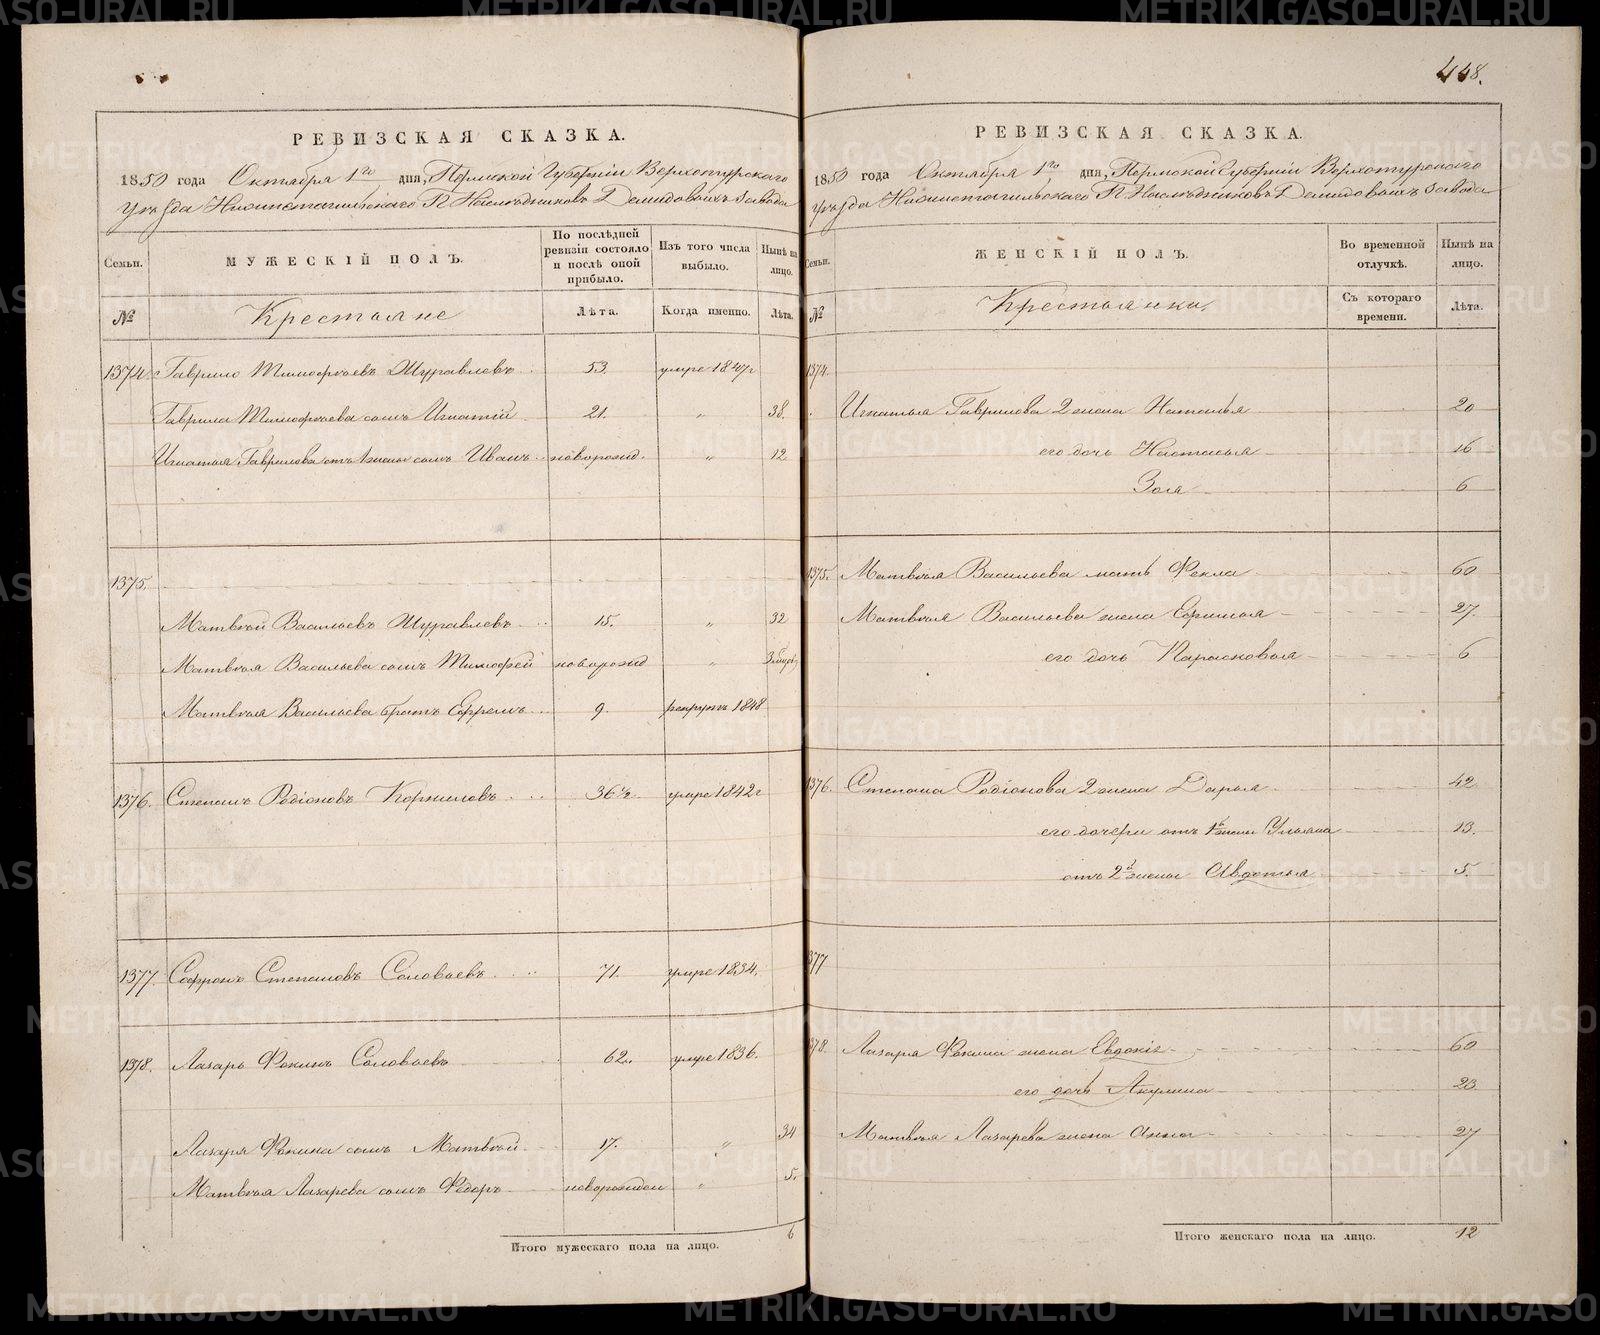 448.
РЕВИЗСКАЯ СКАЗКА.
1850 года Октября 1го дня, Пермской Губерніи Верхотурскаго
уѣзда Нижнетагильскаго Г. Наслѣдниковъ Демидовыхъ завода
Семьи.
МУЖЕСКІЙ ПОЛЪ.
По послѣдней ревизіи состояло и послѣ оной прибыло.
Изъ того числа выбыло.
Нынѣ на лицо.
№
Крестьяне
Лѣта.
Когда именно.
Лѣта.
1374. Гаврило Тимофѣевъ Журавлевъ 53. умре 1847г
Гаврила Тимофѣева сынъ Игнатій 21. " 38.
Игнатья Гаврилова отъ 1 жены сынъ Иванъ новорожд. " 12
1375.
Матвѣй Васильевъ Журавлевъ 15. " 32
Матвѣя Васильева сынъ Тимофей новорожд "
Матвѣя Васильева братъ Ефремъ 9. рекрутъ 1848
1376. Степанъ Родіоновъ Корниловъ 36½. умре 1842г
1377. Софронъ Степановъ Соловьевъ 71. умре 1834.
1378. Лазарь Фокинъ Соловьевъ 62. умре 1836.
Лазаря Фокина сынъ Матвѣй 17. " 34
Матвѣя Лазарева сынъ Федоръ новорожден " 5.
Итого мужескаго пола на лицо. 6
РЕВИЗСКАЯ СКАЗКА.
1850 года Октября 1го дня, Пермской Губерніи Верхотурскаго
уѣзда Нижнетагильскаго Г. Наслѣдниковъ Демидовыхъ завода
Семьи.
ЖЕНСКІЙ ПОЛЪ.
Во временной отлучкѣ.
Нынѣ на лицо.
№
Крестьянки.
Съ котораго времени.
Лѣта.
1374.
Игнатья Гаврилова 2 жена Наталья 20
его дочь Настасья 16
Зоя 6
1375. Матвѣя Васильева мать Фекла 60
Матвѣя Васильева жена Ефимья 27.
его дочь Парасковья 6
1376. Степана Родіонова 2 жена Дарья 42
его дочери отъ 1й жены Ульяна 13.
отъ 2й жены Авдотья 5.
1377
1378. Лазаря Фокина жена Евдокія 60
его дочь Акулина 23
Матвѣя Лазарева жена Анна 27
Итого женскаго пола на лицо. 12
METRIKI.GASO-URAL.RU